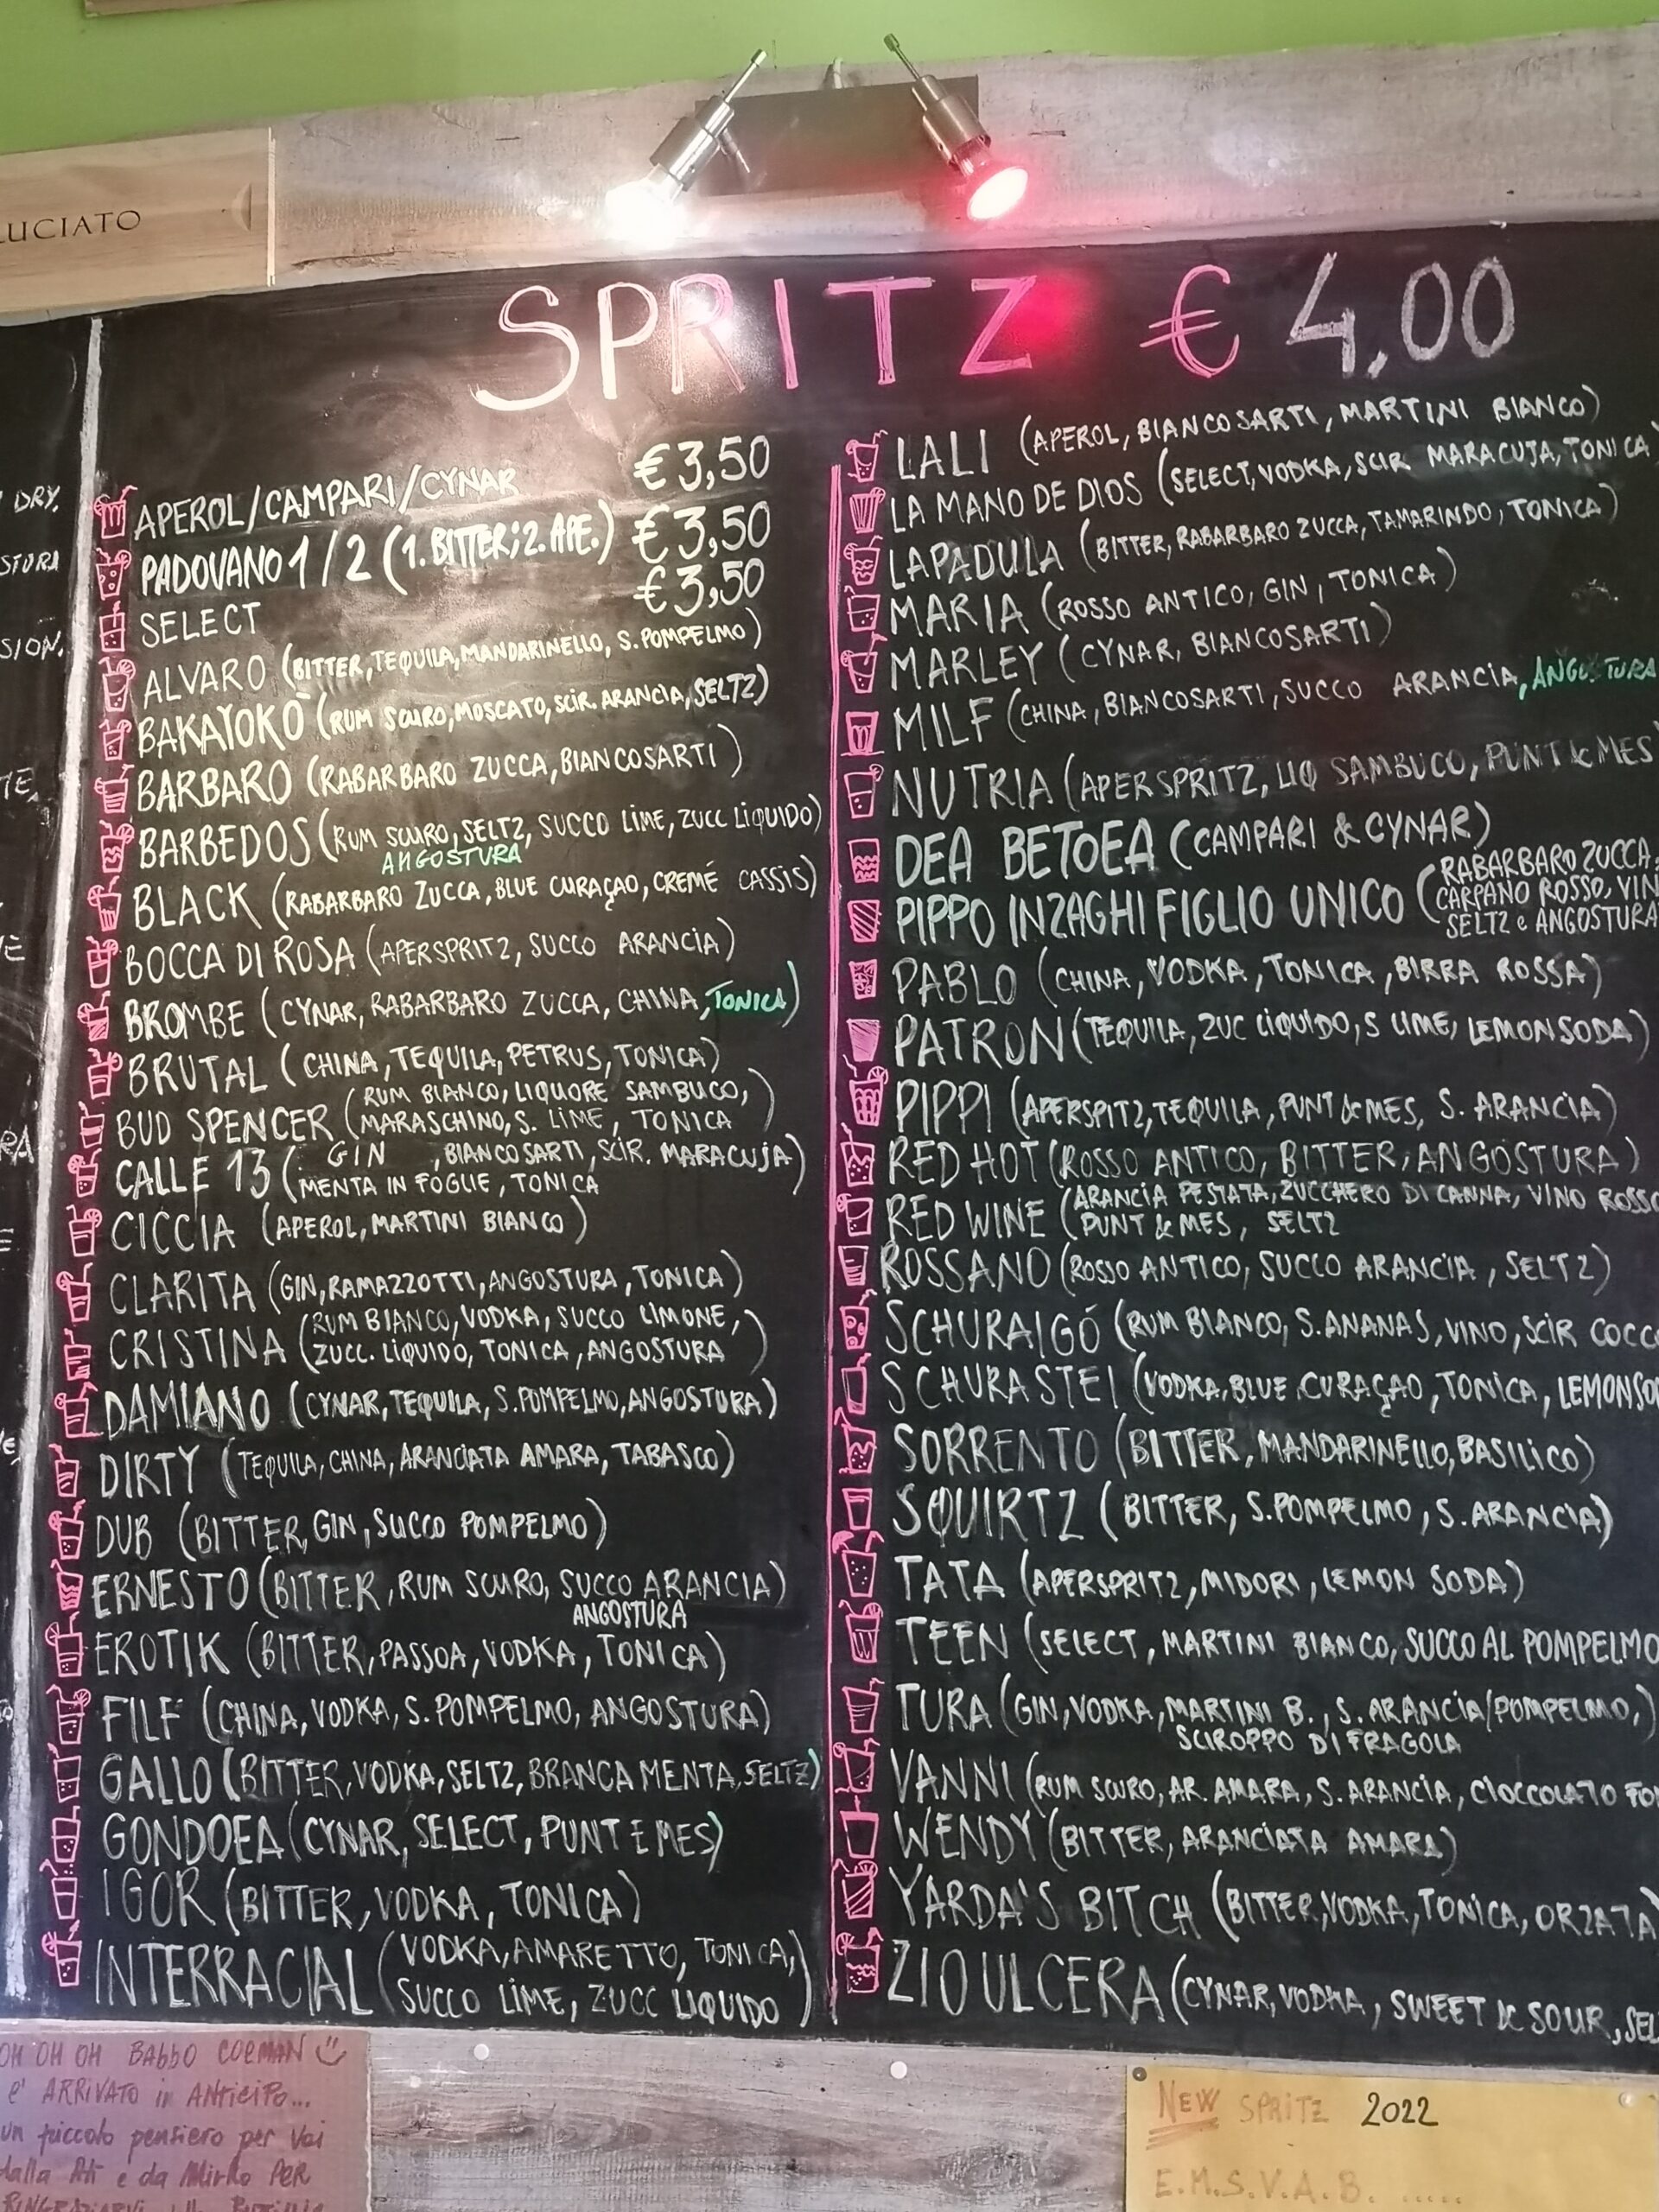 LUCIATO
SPRITZ € 4,00
DRY.
STURA
SION.
APEROL/CAMPARI/CYNAR €3,50
PADOVANO 1/2 (1. BITTER; 2. APE.) €3,50
SELECT €3,50
ALVARO (BITTER, TEQUILA, MANDARINELLO, S. POMPELMO)
BAKAYOKO (RUM SCURO, MOSCATO, SCIR. ARANCIA, SELTZ)
BARBARO (RABARBARO ZUCCA, BIANCOSARTI)
BARBEDOS (RUM SCURO, SELTZ, SUCCO LIME, ZUCC LIQUIDO)
ANGOSTURA
BLACK (RABARBARO ZUCCA, BLUE CURAÇAO, CREMÉ CASSIS)
BOCCA DI ROSA (APERSPRITZ, SUCCO ARANCIA)
BROMBE (CYNAR, RABARBARO ZUCCA, CHINA, TONICA)
BRUTAL (CHINA, TEQUILA, PETRUS, TONICA)
BUD SPENCER (RUM BIANCO, LIQUORE SAMBUCO,
MARASCHINO, S. LIME, TONICA)
CALLE 13 (GIN, BIANCOSARTI, SCIR. MARACUJA)
MENTA IN FOGLIE, TONICA
CICCIA (APEROL, MARTINI BIANCO)
CLARITA (GIN, RAMAZZOTTI, ANGOSTURA, TONICA)
CRISTINA (RUM BIANCO, VODKA, SUCCO LIMONE,
ZUCC. LIQUIDO, TONICA, ANGOSTURA)
DAMIANO (CYNAR, TEQUILA, S. POMPELMO, ANGOSTURA)
DIRTY (TEQUILA, CHINA, ARANCIATA AMARA, TABASCO)
DUB (BITTER, GIN, SUCCO POMPELMO)
ERNESTO (BITTER, RUM SCURO, SUCCO ARANCIA)
ANGOSTURA
EROTIK (BITTER, PASSOA, VODKA, TONICA)
FILF (CHINA, VODKA, S. POMPELMO, ANGOSTURA)
GALLO (BITTER, VODKA, SELTZ, BRANCA MENTA, SELTZ)
GONDOEA (CYNAR, SELECT, PUNT E MES)
IGOR (BITTER, VODKA, TONICA)
INTERRACIAL (VODKA, AMARETTO, TONICA,
SUCCO LIME, ZUCC LIQUIDO)
LALI (APEROL, BIANCOSARTI, MARTINI BIANCO)
LA MANO DE DIOS (SELECT, VODKA, SCIR MARACUJA, TONICA)
LAPADULA (BITTER, RABARBARO ZUCCA, TAMARINDO, TONICA)
MARIA (ROSSO ANTICO, GIN, TONICA)
MARLEY (CYNAR, BIANCOSARTI)
MILF (CHINA, BIANCOSARTI, SUCCO ARANCIA, ANGOSTURA
NUTRIA (APERSPRITZ, LIQ SAMBUCO, PUNT & MES)
DEA BETOEA (CAMPARI & CYNAR)
PIPPO INZAGHI FIGLIO UNICO (RABARBARO ZUCCA,
CARPANO ROSSO, VIN
SELTZ e ANGOSTURA
PABLO (CHINA, VODKA, TONICA, BIRRA ROSSA)
PATRON (TEQUILA, ZUC LIQUIDO, S LIME, LEMONSODA)
PIPPI (APERSPITZ, TEQUILA, PUNT & MES, S. ARANCIA)
RED HOT (ROSSO ANTICO, BITTER, ANGOSTURA)
RED WINE (ARANCIA PESTATA, ZUCCHERO DI CANNA, VINO ROSSO
PUNT & MES, SELTZ
ROSSANO (ROSSO ANTICO, SUCCO ARANCIA, SELTZ)
SCHURAIGÓ (RUM BIANCO, S. ANANAS, VINO, SCIR COCCO
SCHURASTEI (VODKA, BLUE CURAÇAO, TONICA, LEMONSO
SORRENTO (BITTER, MANDARINELLO, BASILICO)
SQUIRTZ (BITTER, S. POMPELMO, S. ARANCIA)
TATA (APERSPRITZ, MIDORI, LEMON SODA)
TEEN (SELECT, MARTINI BIANCO, SUCCO AL POMPELMO
TURA (GIN, VODKA, MARTINI B., S. ARANCIA/POMPELMO,)
SCIROPPO DI FRAGOLA
VANNI (RUM SCURO, AR. AMARA, S. ARANCIA, CIOCCOLATO FO
WENDY (BITTER, ARANCIATA AMARA)
YARDA'S BITCH (BITTER, VODKA, TONICA, ORZATA)
ZIO ULCERA (CYNAR, VODKA, SWEET & SOUR, SEL
OH OH OH BABBO COEMAN
E' ARRIVATO in ANTICIPO...
un piccolo pensiero per voi
dalla Ati e da Mirko PER
NEW SPRITZ 2022
E.M.S.V.A.B. .....